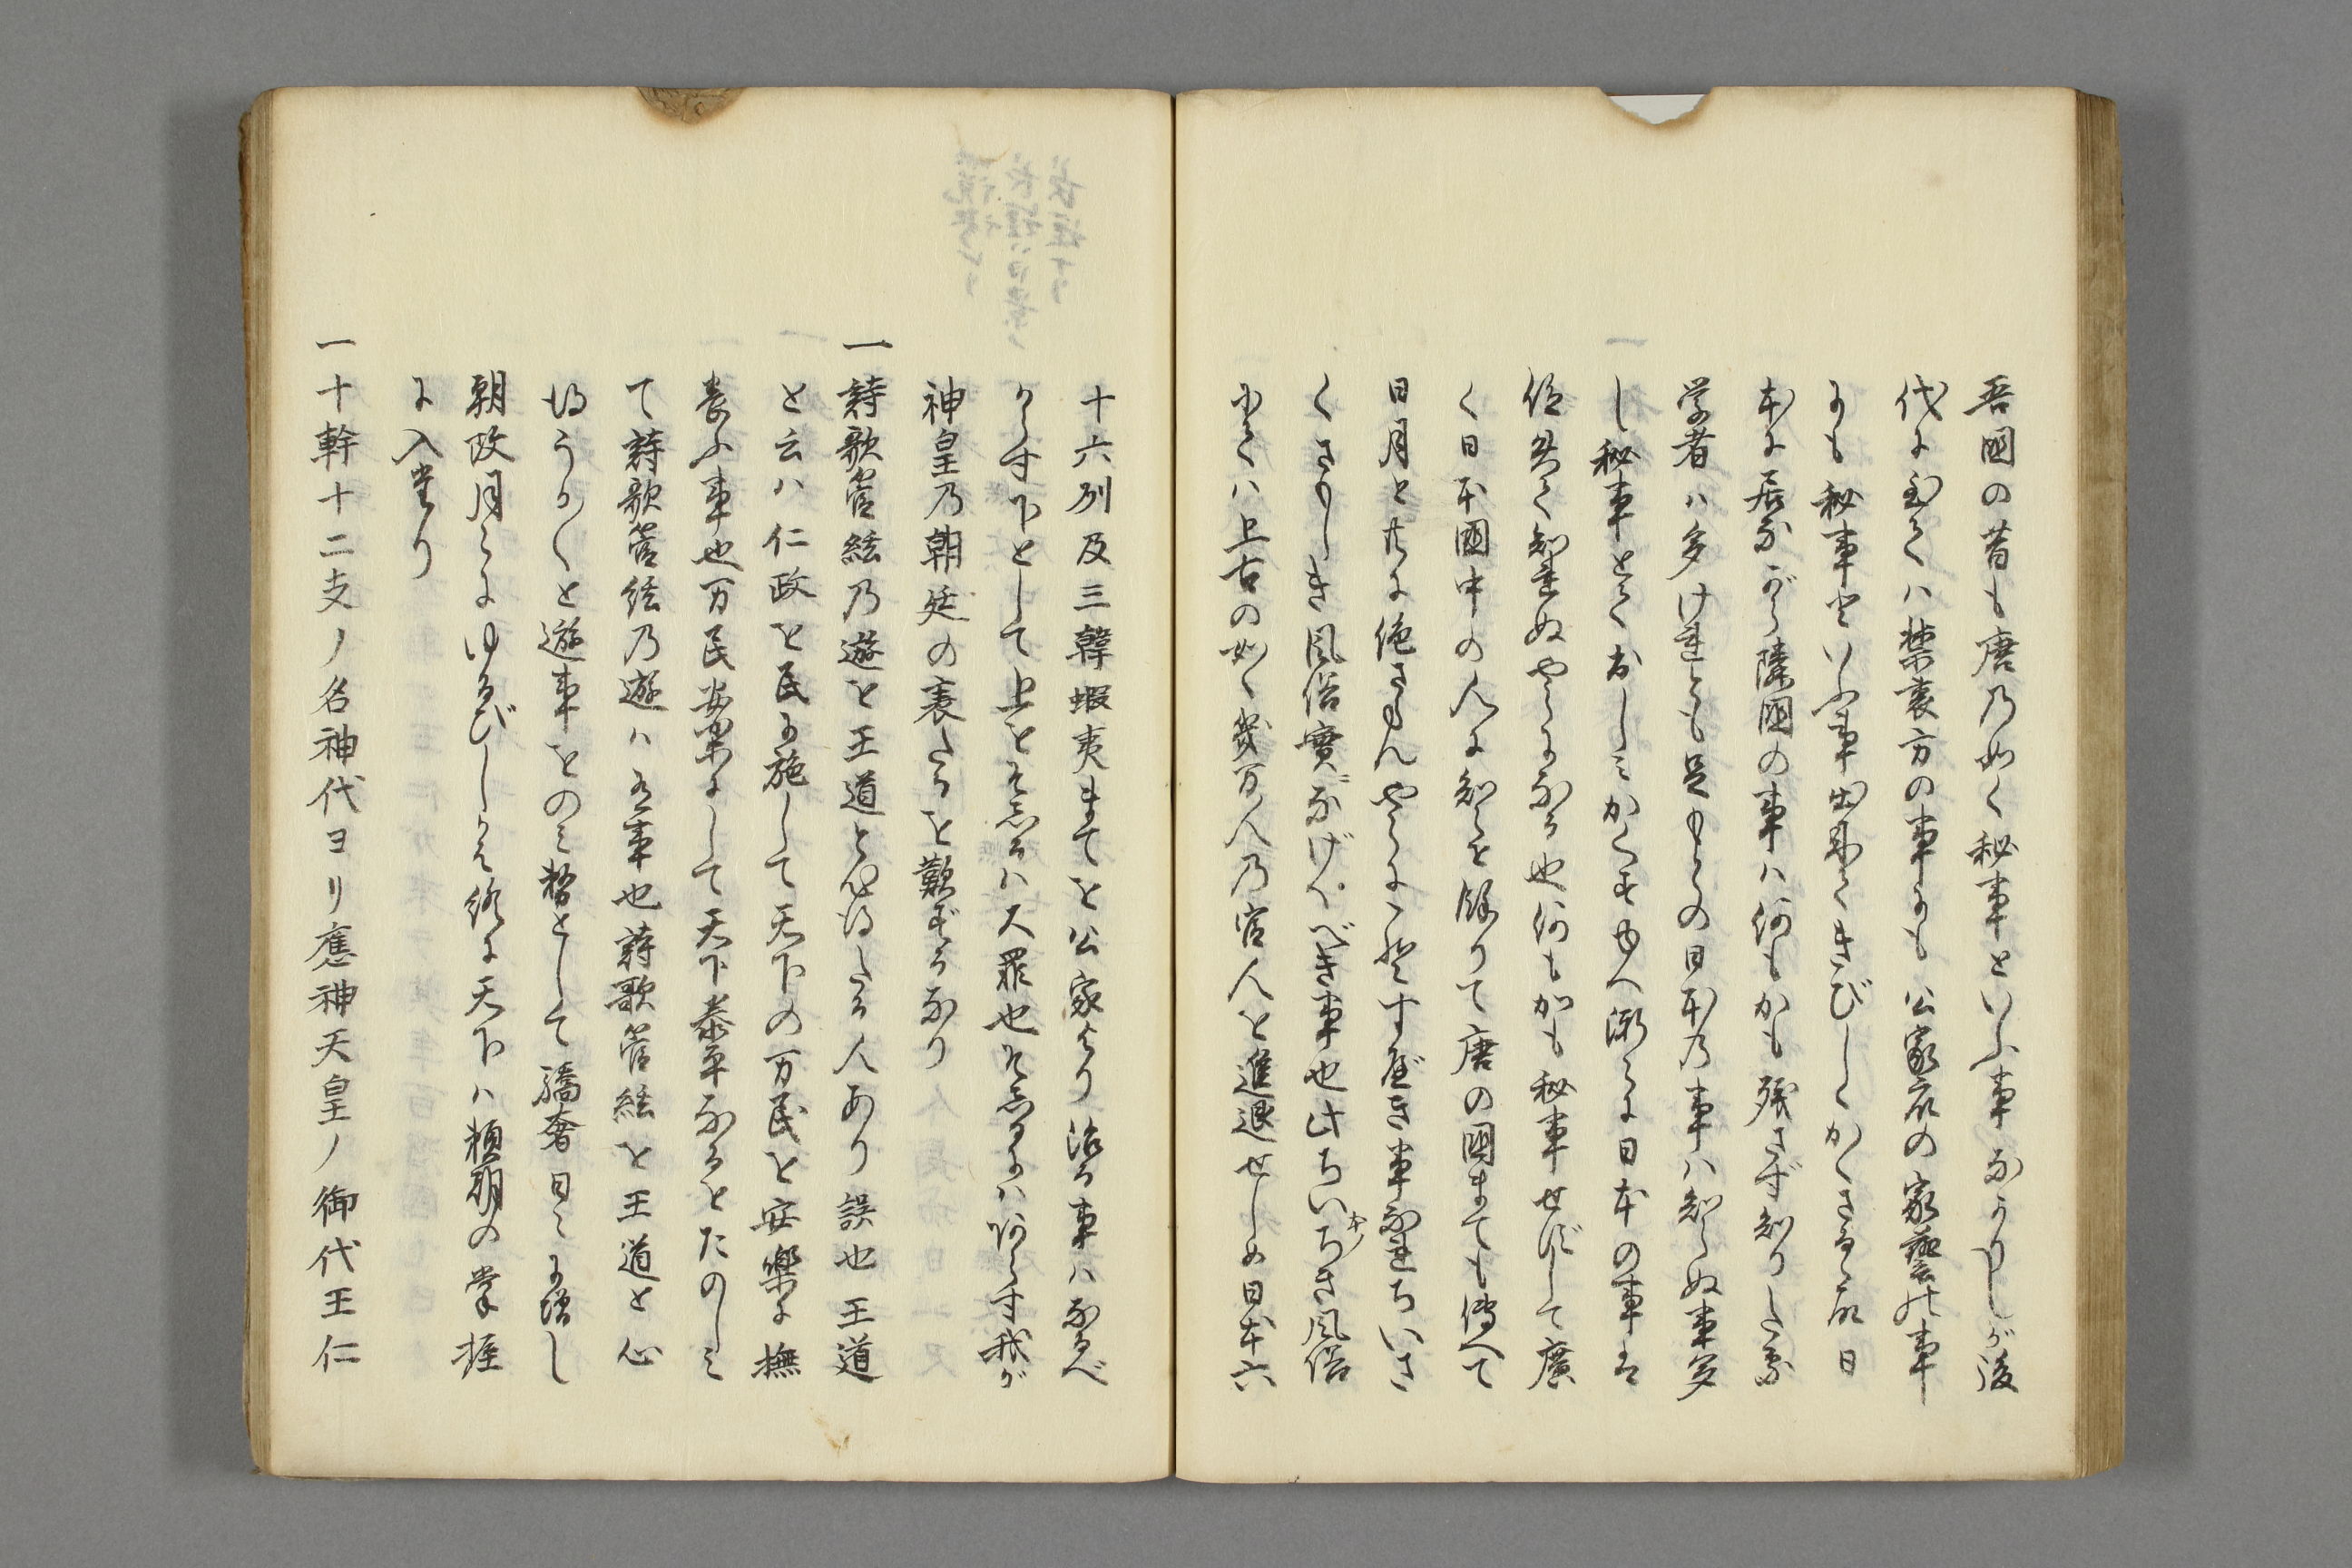 吾國の昔も唐乃如く秘事といふ事なかりしが後
代に至ては禁裏方の事にも公家衆の家藝の事
にも秘事といふ事出来てきびしくかくさるゝ故日
本に居ながら隣國の事ハ何もかも残さず知りたる
学者ハ多けれども足もとの日本乃事ハ知らぬ事多
し秘事とておしみかくすゆへ漸々に日本の事を
俗共て知れぬやうになる也何もかも秘事せずして廣
く日本國中の人に知らせ餘りて唐の國までも傳へて
日月と共に絶さらんやうにこそすべき事なれちいさ
くさもしき風俗實ニなげくべき事也此ちいちき風俗
にてハ上古の如く幾百人乃官人を進退せしめ日本六
十六列及三韓蝦夷までを公家より治る事ハなるべ
からず下として上をそしるハ大罪也そしるにハあらず我が
神皇乃朝廷の衰たるを歎ずるなり
一詩歌管絃乃遊を王道と心得たる人あり誤也王道
と云ハ仁政を民に施して天下の万民を安樂に撫
養ふ事也万民安楽にして天下泰平なるをたのしみ
て詩歌管絃乃遊ハする事也詩歌管絃を王道と心
得うか〳〵と遊事をのみ務として驕奢日々に増し
朝政月々にゆるびしかバ終に天下ハ頼朝の掌握
に入たり
一十幹十二支ノ名神代ヨリ應神天皇ノ御代王仁